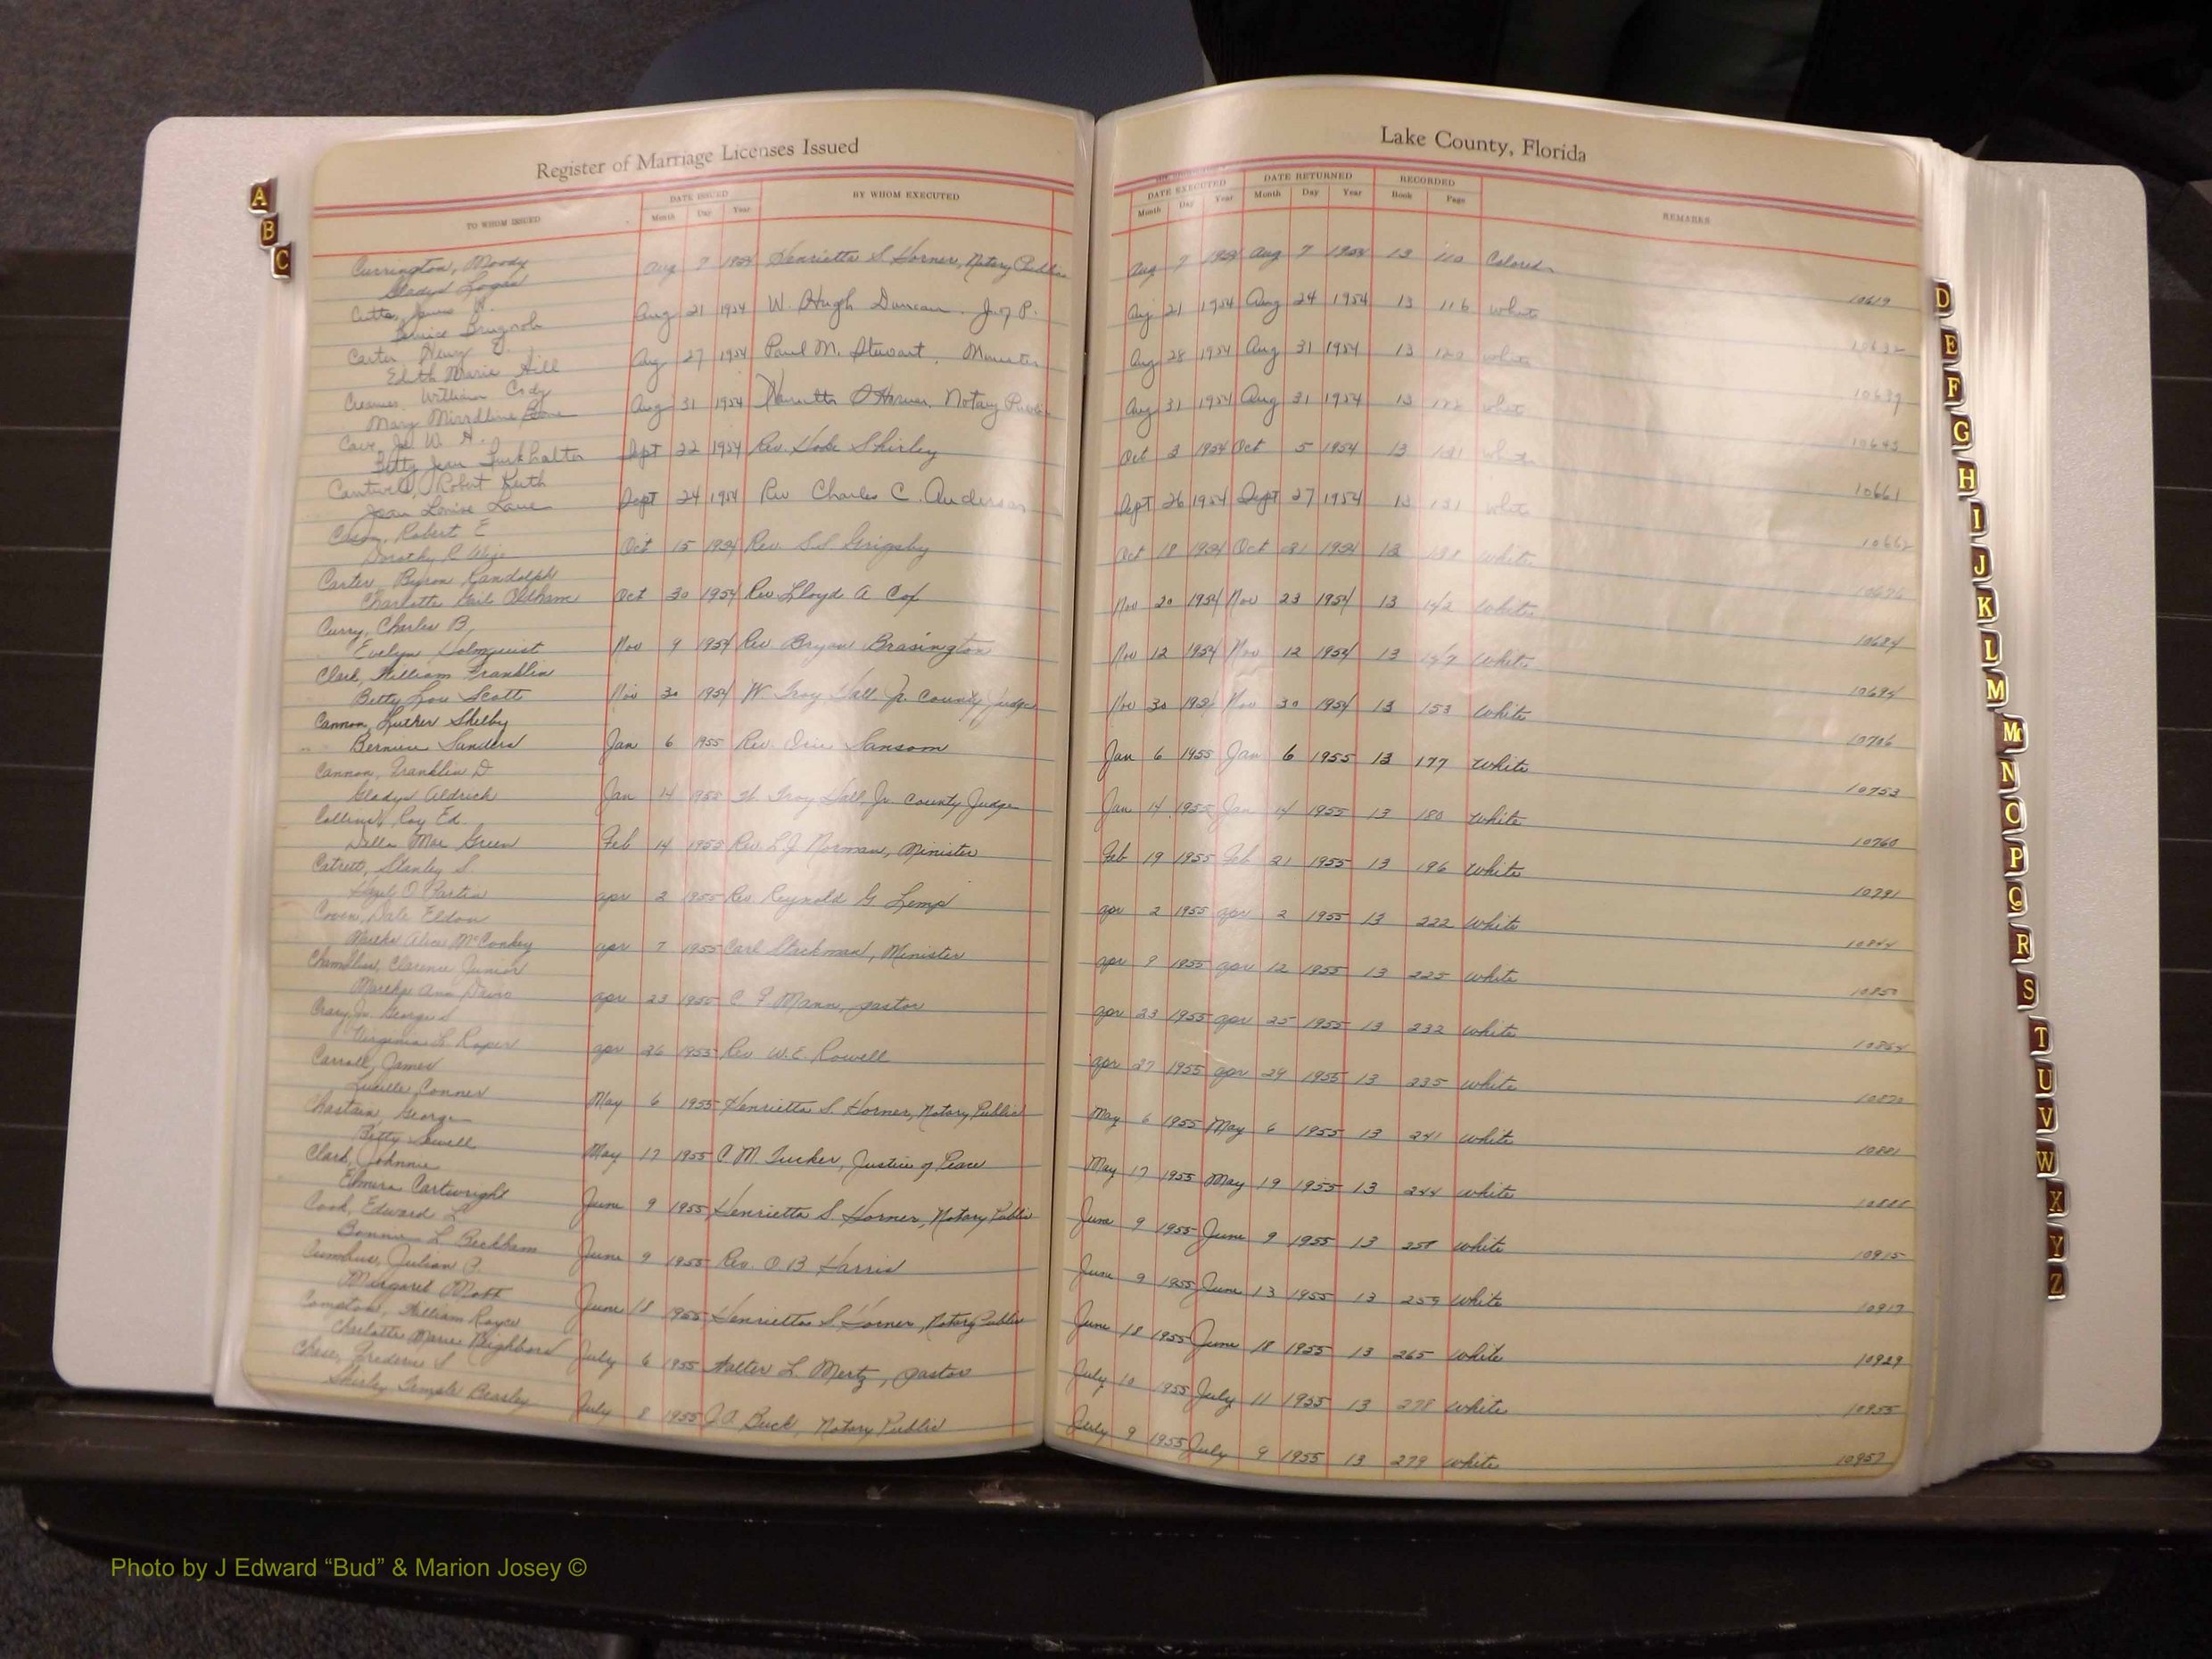 Register of Marriage Licenses Issued
Lake County, Florida
TO WHOM ISSUED
DATE ISSUED
Month Day Year
BY WHOM EXECUTED
DATE EXECUTED
Month Day Year
DATE RETURNED
Month Day Year
RECORDED
Book Page
REMARKS
Currington, Moody
Gladys Logan
Aug 7 1954 Henrietta S Horner, Notary Public Aug 7 1954 Aug 7 1954 13 110 Colored 10619
Cutts, James
Aug 21 1954 W. Hugh Duncan. J. of P. Aug 21 1954 Aug 24 1954 13 116 White 10632
Carter Henry
Edith Marie Hill
Aug 27 1954 Paul M. Stewart, Minister Aug 28 1954 Aug 31 1954 13 120 White 10639
Creamer, William Cody
Mary
Aug 31 1954 Henrietta S Horner, Notary Public Aug 31 1954 Aug 31 1954 13 White 10645
Cave, Jr W. H.
Betty Jean Burkhalter
Sept 22 1954 Rev. Hobe Shirley Oct 3 1954 Oct 5 1954 13 131 White 10661
Cantwell, Robert Keith
Joan Louise Lane
Sept 24 1954 Rev Charles C. Anderson Sept 26 1954 Sept 27 1954 13 131 White 10662
Robert E
Dorothy C
Oct 15 1954 Rev. Grigsby Oct 18 1954 Oct 21 1954 13 138 White
Carter, Byron Randolph
Charlotte Gail Oldham
Oct 30 1954 Rev. Lloyd A Cox Nov 20 1954 Nov 23 1954 13 142 White 10684
Curry, Charles B,
Evelyn Holmquist
Nov 9 1954 Rev Bryan Brasington Nov 12 1954 Nov 12 1954 13 147 White 10694
Clark, William Franklin
Betty Lou Scott
Nov 30 1954 W Troy Hall Jr. County Judge Nov 30 1954 Nov 30 1954 13 153 White 10706
Cannon, Luther Shelby
Bernice Sanders
Jan 6 1955 Rev. Sansom Jan 6 1955 Jan 6 1955 13 177 White 10753
Cannon, Franklin D
Gladys Aldrich
Jan 14 1955 W. Troy Hall, Jr. County Judge Jan 14 1955 Jan 14 1955 13 180 White 10760
Collins, Roy Ed.
Della Mae Green
Feb 14 1955 Rev. L J Norman, Minister Feb 19 1955 Feb 21 1955 13 196 White 10791
Catrett, Stanley S.
Hazel O. Partin
Apr 2 1955 Rev Reynold G Lemp Apr 2 1955 Apr 2 1955 13 222 White 10844
Dale Eldon
Martha Alice McConkey
Apr 7 1955 Carl Stackman, Minister Apr 9 1955 Apr 12 1955 13 225 White 10850
Clarence Junior
Martha Ann Davis
Apr 23 1955 C F Mann, Pastor Apr 23 1955 Apr 25 1955 13 232 White 10864
Crary, Jr. George S
Virginia L. Roper
Apr 26 1955 Rev. W.E. Rowell Apr 27 1955 Apr 29 1955 13 235 White 10870
Carroll, James
Lucille Conner
May 6 1955 Henrietta S. Horner, Notary Public May 6 1955 May 6 1955 13 241 White 10881
Chastain, George
Betty Sewell
May 17 1955 C M Tucker, Justice of Peace May 17 1955 May 19 1955 13 244 White 10888
Clark, Johnnie
Elmera Cartwright
June 9 1955 Henrietta S. Horner, Notary Public June 9 1955 June 9 1955 13 258 White 10915
Cook, Edward L
Bonnie L Beckham
June 9 1955 Rev. O B Harris June 9 1955 June 13 1955 13 259 White 10917
Julian P.
Margaret Mobb
June 18 1955 Henrietta S Horner, Notary Public June 18 1955 June 18 1955 13 265 White 10929
Compton, William Royce
Charlotte Marie Neighbors
July 6 1955 Walter L. Mertz, Pastor July 10 1955 July 11 1955 13 278 White 10955
Chase, Frederic S
Shirley Temple Beasley
July 8 1955 J. A. Buck, Notary Public July 9 1955 July 9 1955 13 279 White 10957
A
B
C
D
E
F
G
H
I
J
K
L
M
Mc
N
O
P
Q
R
S
T
U
V
W
X
Y
Z
Photo by J Edward “Bud” & Marion Josey ©